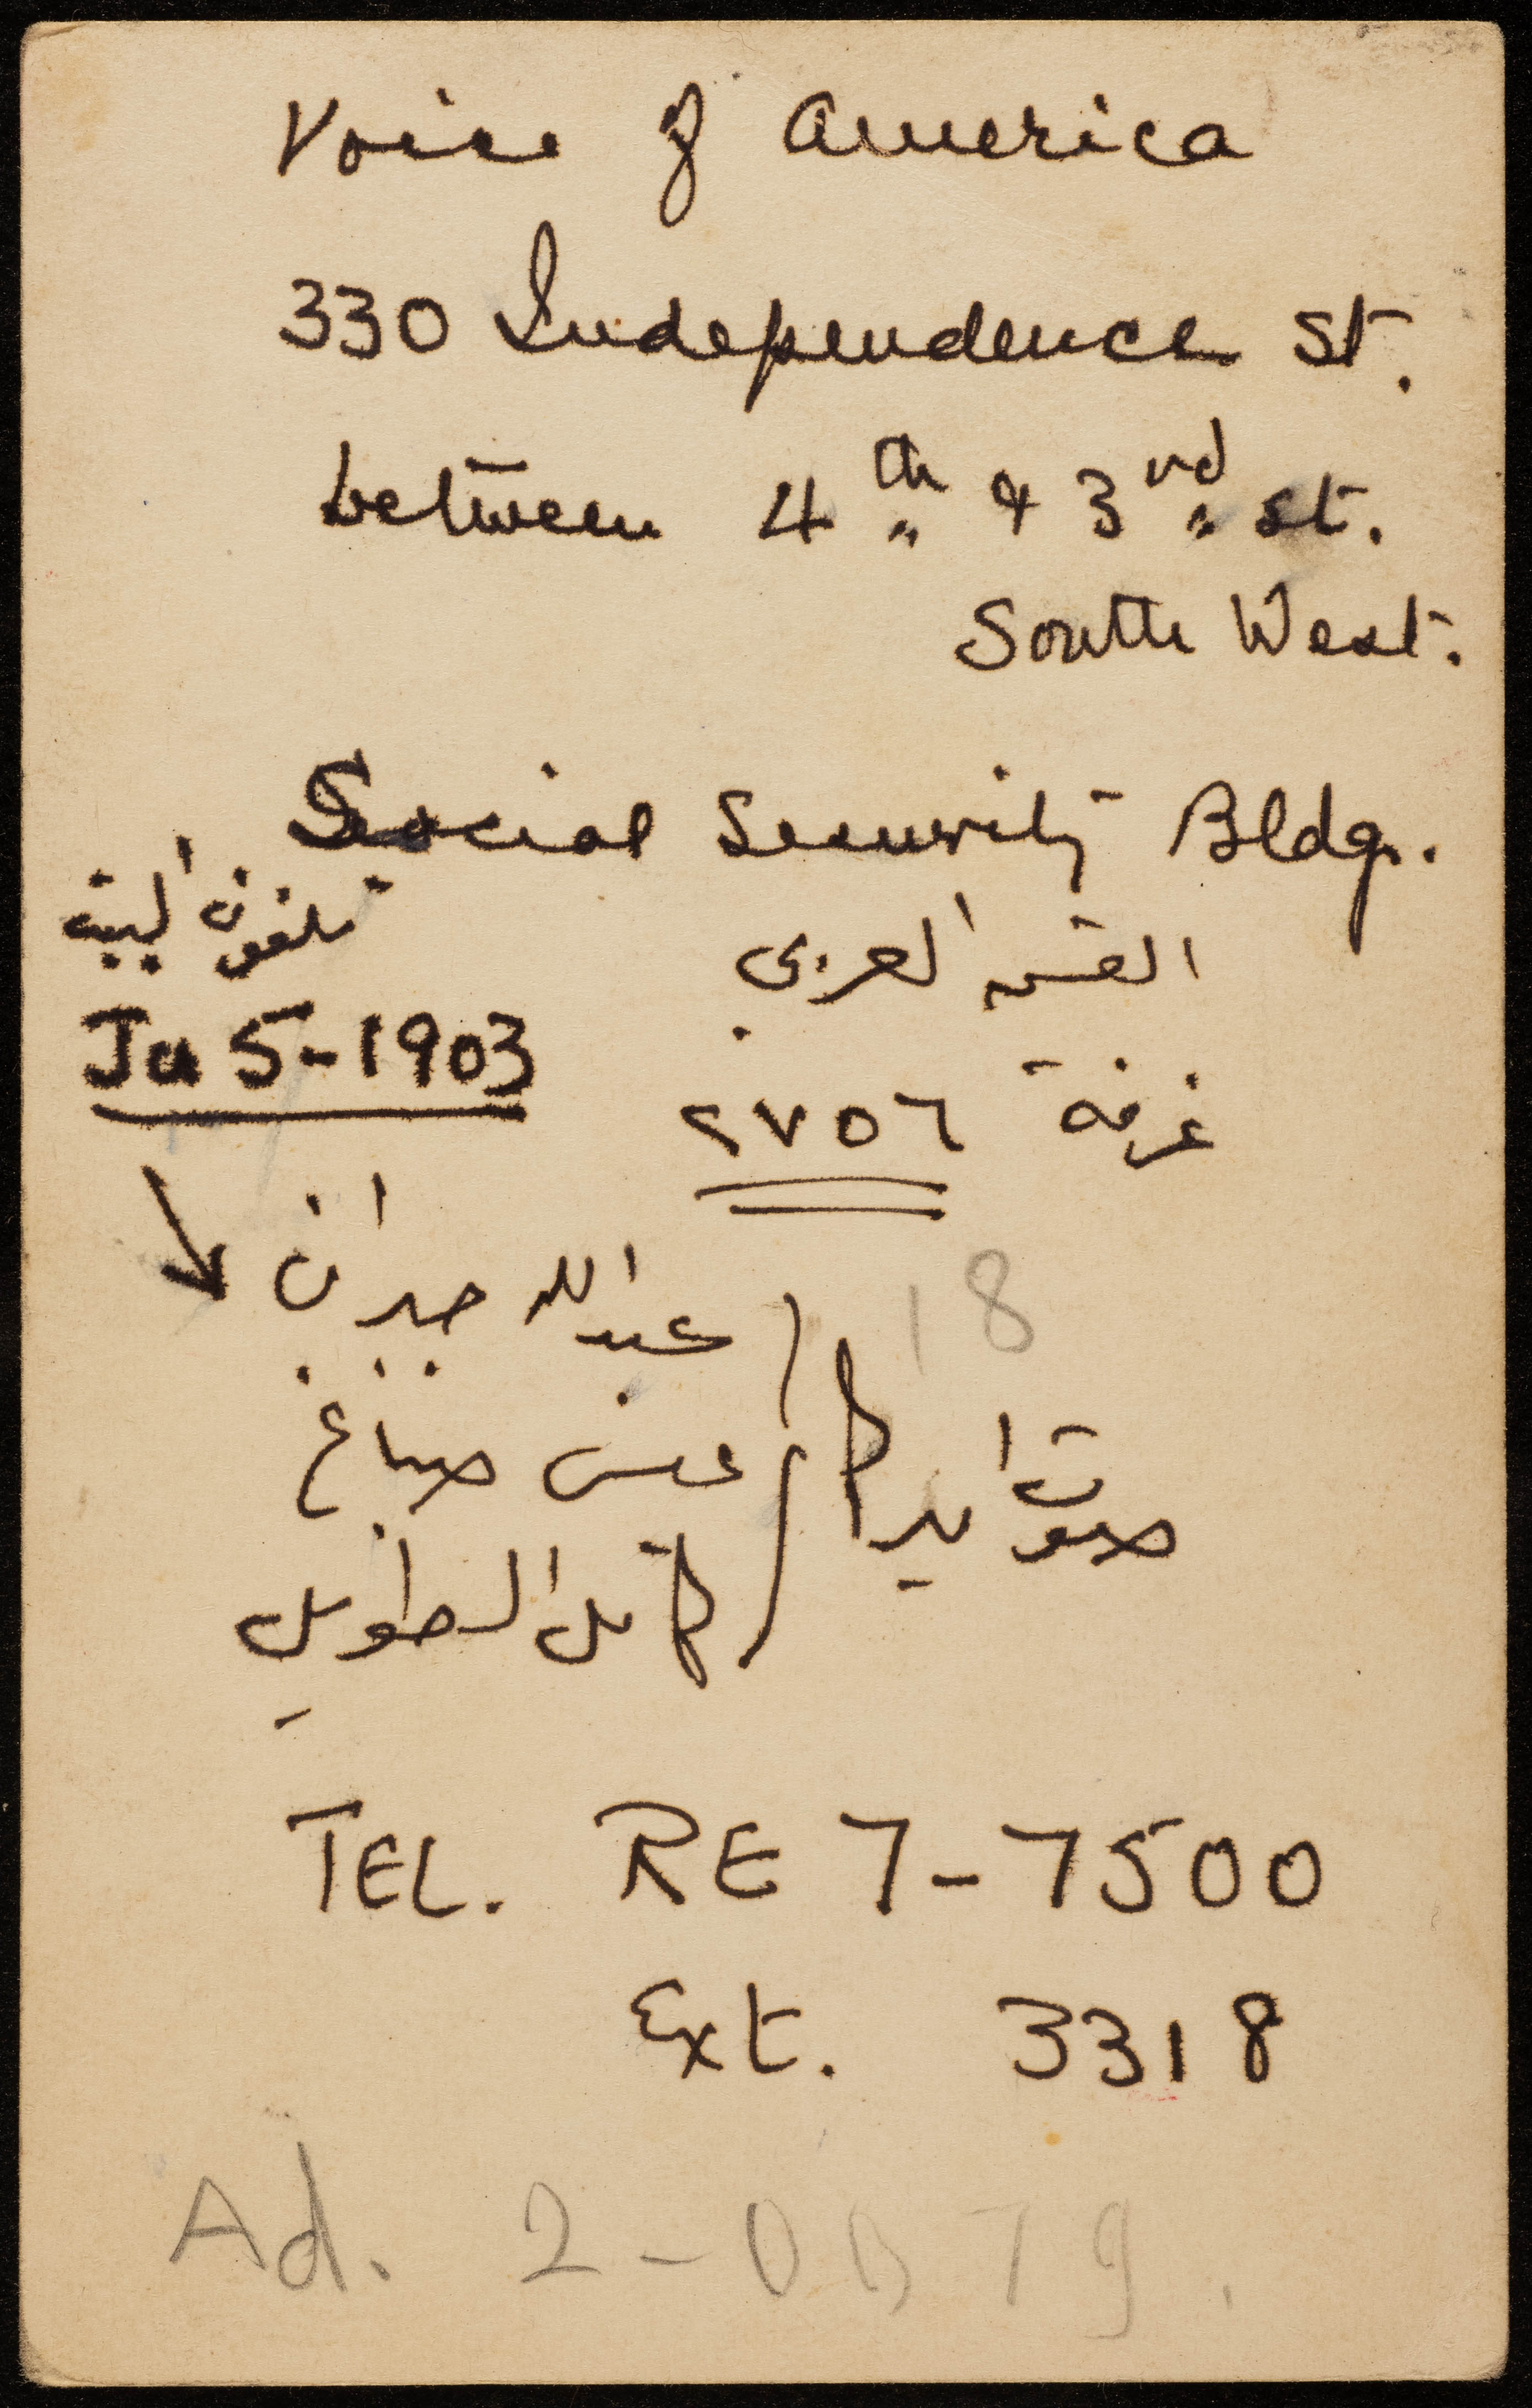 Voice of America
330 Independence St.
between 4th & 3rd St.
South West.
Social Security Bldg.
تلفون البيت
Ju 5-1903
القسم العربي
غرفة ٢٧٥٦
18
صوت اميركا
عبدالله جبران
صباغ
كامل الطويل
TEL. RE 7-7500
Ext. 3318
Ad. 2-0